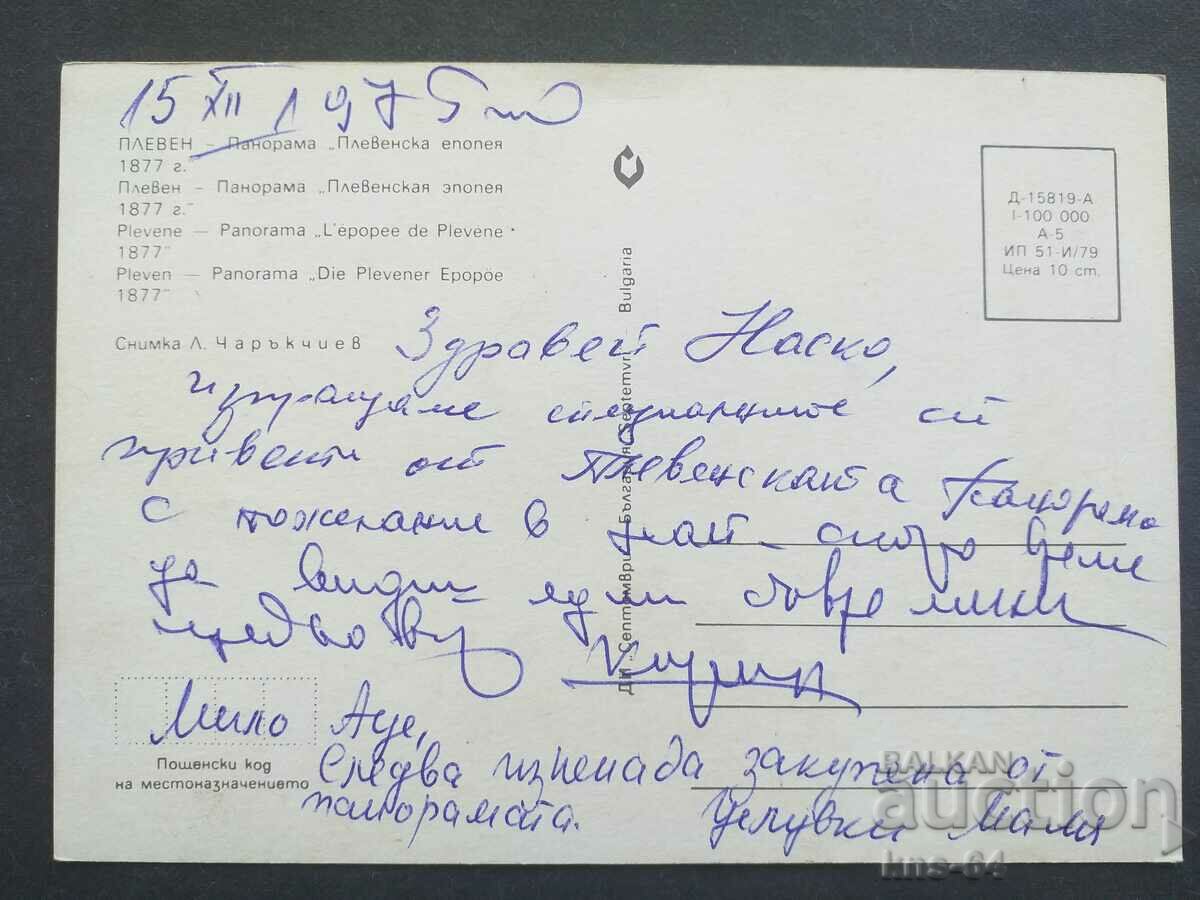 15 XII 197
ПЛЕВЕН – Панорама „Плевенска епопея
1877 г."
Плевен – Панорама „Плевенская эпопея
1877 г."
Plevene — Panorama „L'épopée de Plevene
1877"
Pleven — Panorama „Die Plevener Epopöe
1877"
Снимка Л. Чаръкчиев
ДИ „Септември" България „Septemvri" Bulgaria
Д-15819-А
I-100 000
А-5
ИП 51-И/79
Цена 10 ст.
Здравей Наско,
изпращаме специалните си
привети от Плевенската Панорама
с пожелание в най-скоро време
да видиш
Мило Аце,
Следва изненада закупена от
панорамата. Целувки Мама
Пощенски код
на местоназначението
BALKAN
auction
kns-64